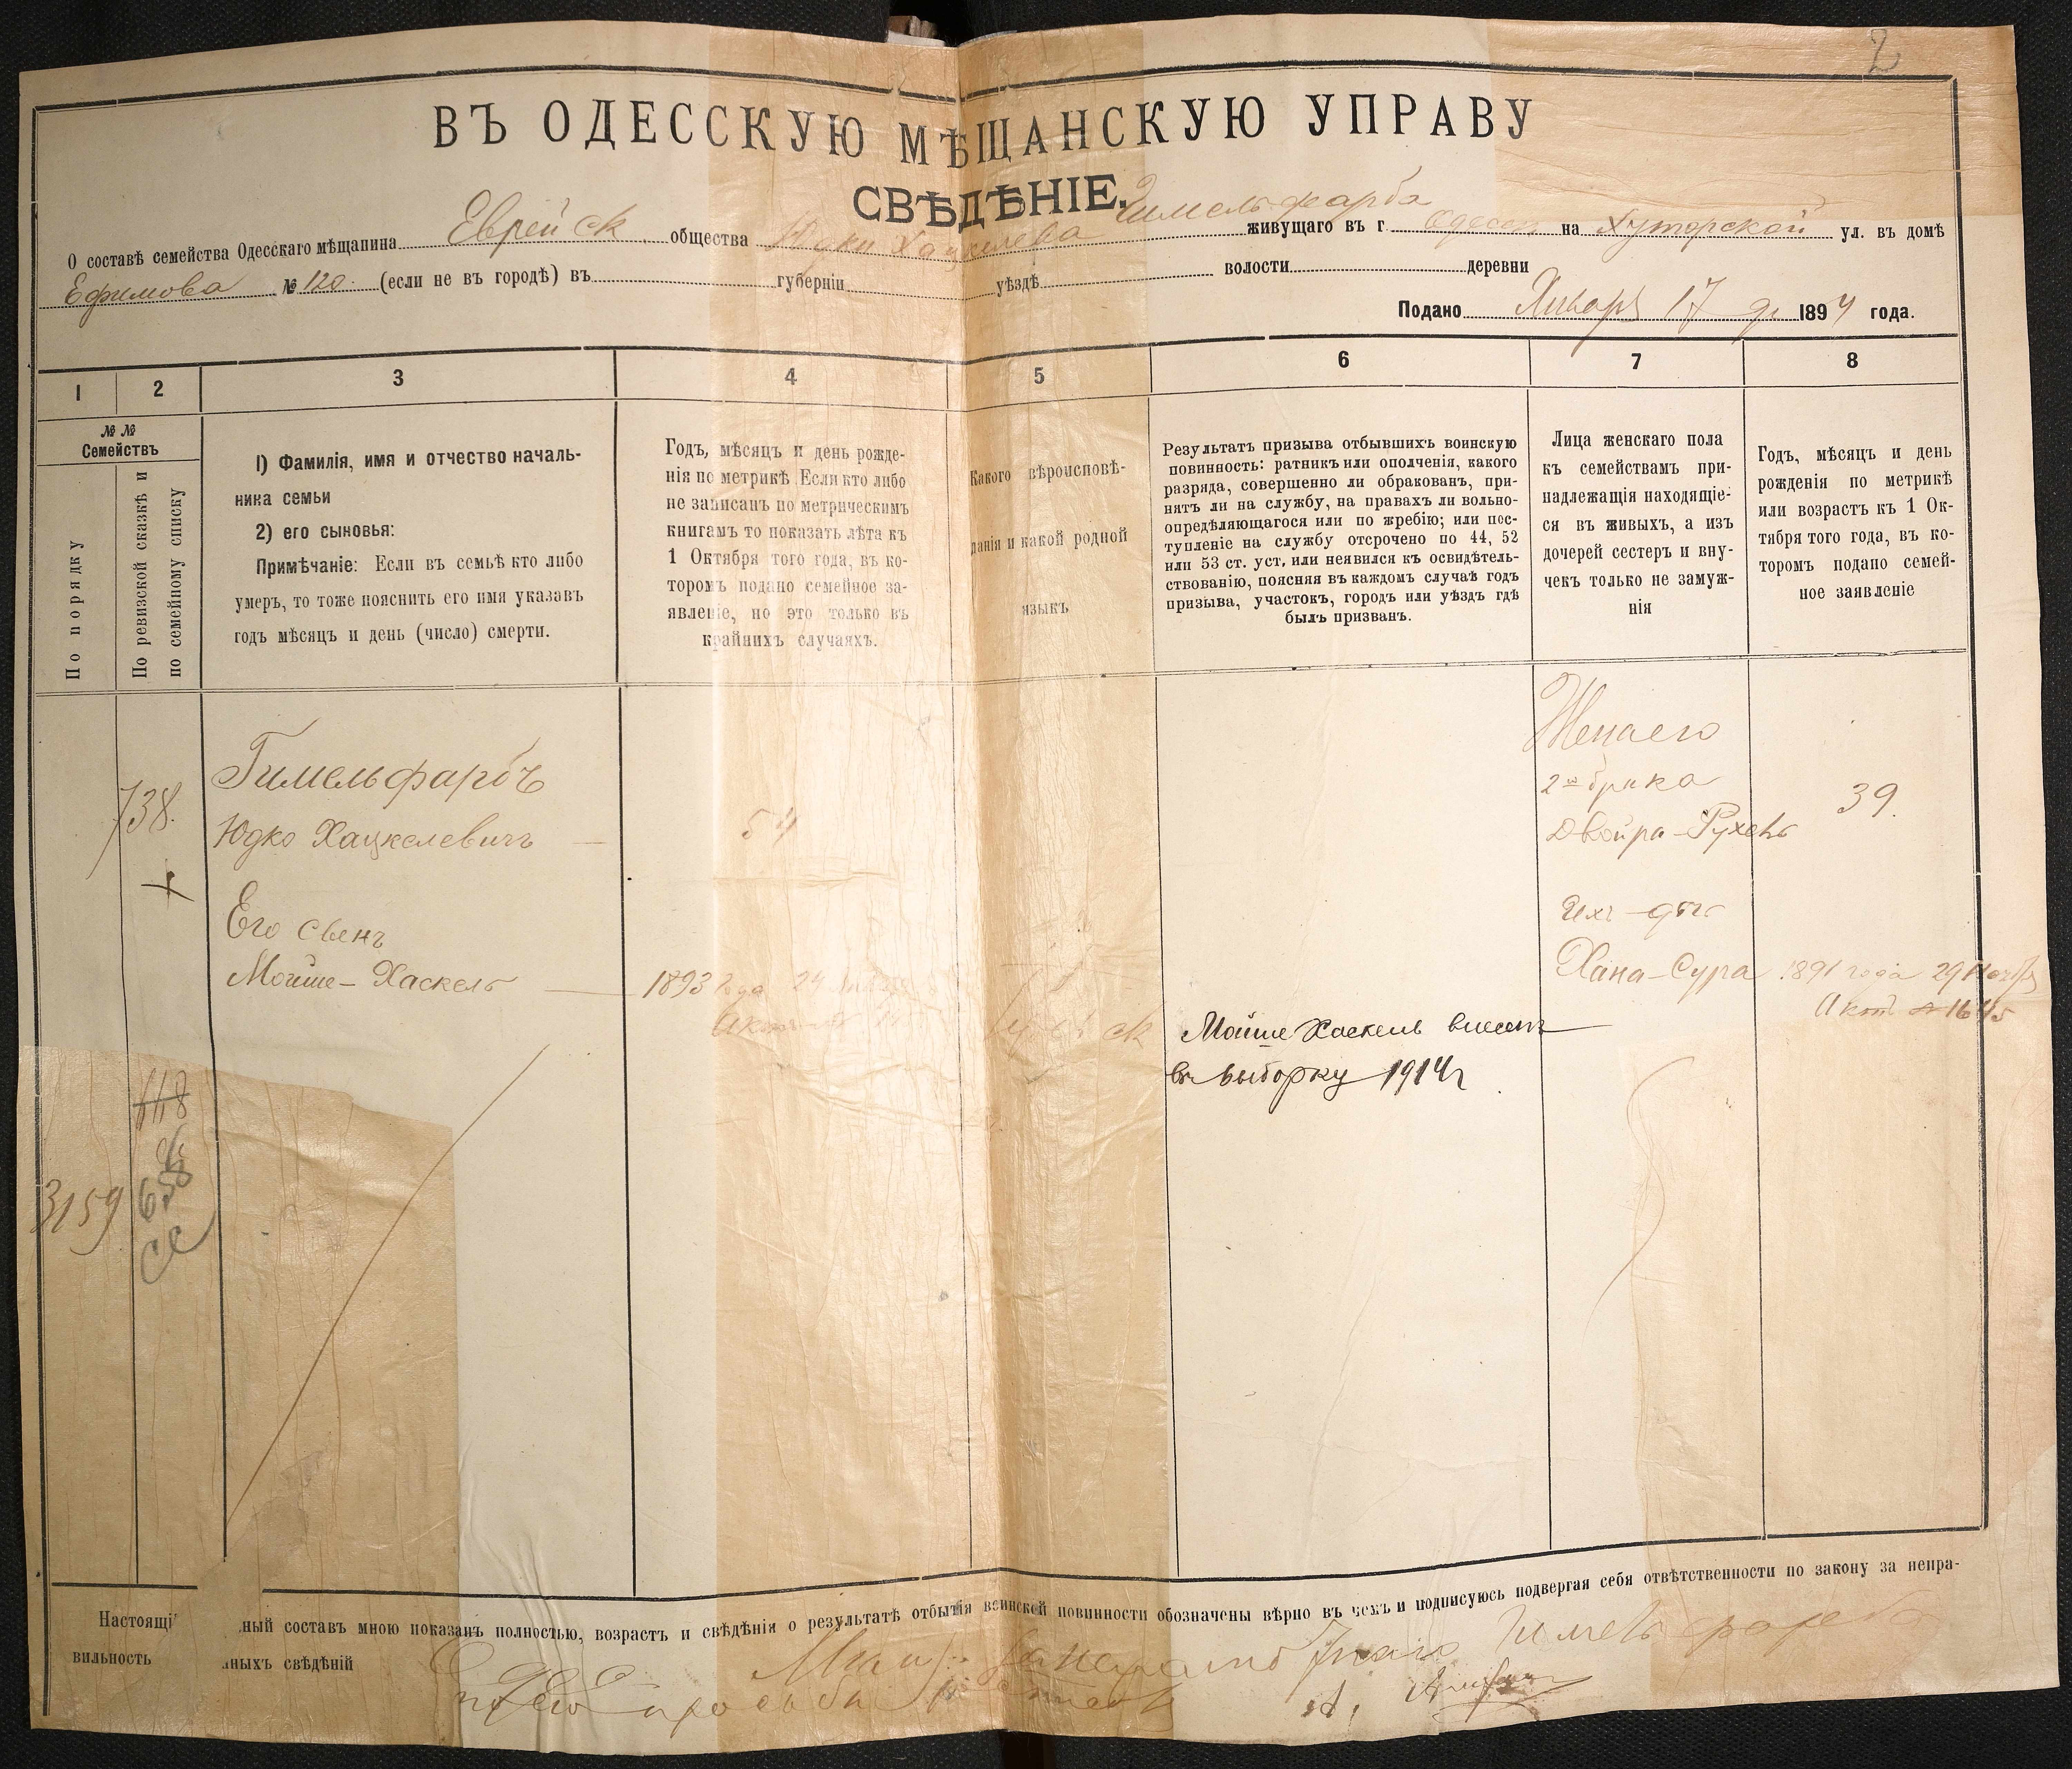 2
ВЪ ОДЕССКУЮ МѢЩАНСКУЮ УПРАВУ
СВѢДѢНІЕ.
Гимельфарба
О составѣ семейства Одесскаго мѣщанина Еврейск общества Юдки Хацкелева живущаго въ г. Одессѣ на Хуторской ул. въ домѣ
Ефимова № 120. (если не въ городѣ) въ губерніи уѣздѣ волости деревни
Подано Января 17 д. 1894 года.
1 2 3 4 5 6 7 8
№ № Семействъ
По порядку
По ревизской сказкѣ и
по семейному списку
1) Фамилія, имя и отчество началь-
ника семьи
2) его сыновья:
Примѣчаніе: Если въ семьѣ кто либо
умеръ, то тоже пояснить его имя указавъ
годъ мѣсяцъ и день (число) смерти.
Годъ, мѣсяцъ и день рожде-
нія по метрикѣ. Если кто либо
не записанъ по метрическимъ
книгамъ то показать лѣта къ
1 Октября того года, въ ко-
торомъ подано семейное за-
явленіе, но это только въ
крайнихъ случаяхъ.
Какого вѣроисповѣ-
данія и какой родной
языкъ
Результатъ призыва отбывшихъ воинскую
повинность: ратникъ или ополченія, какого
разряда, совершенно ли обракованъ, при-
нятъ ли на службу, на правахъ ли вольно-
опредѣляющагося или по жребію; или пос-
тупленіе на службу отсрочено по 44, 52
или 53 ст. уст, или неявился къ освидѣтель-
ствованію, поясняя въ каждомъ случаѣ годъ
призыва, участокъ, городъ или уѣздъ гдѣ
былъ призванъ.
Лица женскаго пола
къ семействамъ при-
надлежащія находящіе-
ся въ живыхъ, а изъ
дочерей сестеръ и вну-
чекъ только не замуж-
нія
Годъ, мѣсяцъ и день
рожденія по метрикѣ
или возрастъ къ 1 Ок-
тября того года, въ ко-
торомъ подано семей-
ное заявленіе
738.
Гимельфарбъ
Юдко Хацкелевичъ
54
Жена его
2го брака
Двойра-Рухель
39.
Его сынъ
Мойше-Хаскель
1893 года 24
Акт №
Ихъ дочь
Хана-Сура
1891 года 29 Ноября
Актъ № 1645
Мойше Хаскель внесенъ
въ выборку 1914г
118
658
3159
Настоящі ный составъ мною показанъ полностью, возрастъ и свѣдѣнія о результатѣ отбытія воинской повинности обозначены вѣрно въ чемъ и подписуюсь подвергая себя отвѣтственности по закону за непра-
вильность нныхъ свѣдѣній
Гимельфарба
по его просьбѣ